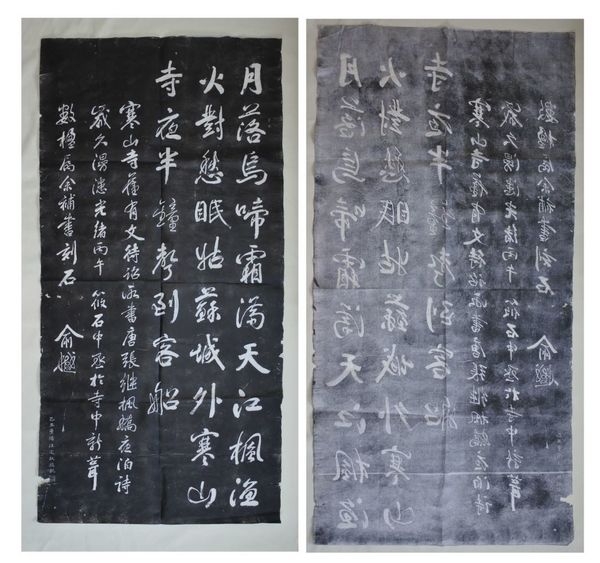 月落烏啼霜滿天江楓漁
火對愁眠姑蘇城外寒山
寺夜半鐘聲到客船
寒山寺舊有文待詔所書唐張繼楓橋夜泊詩
歲久漫漶光緒丙午筱石中丞於寺中新葺
數楹屬余補書刻石 俞樾
月落烏啼霜滿天江楓漁
火對愁眠姑蘇城外寒山
寺夜半鐘聲到客船
寒山寺舊有文待詔所書唐張繼楓橋夜泊詩
歲久漫漶光緒丙午筱石中丞於寺中新葺
數楹屬余補書刻石 俞樾